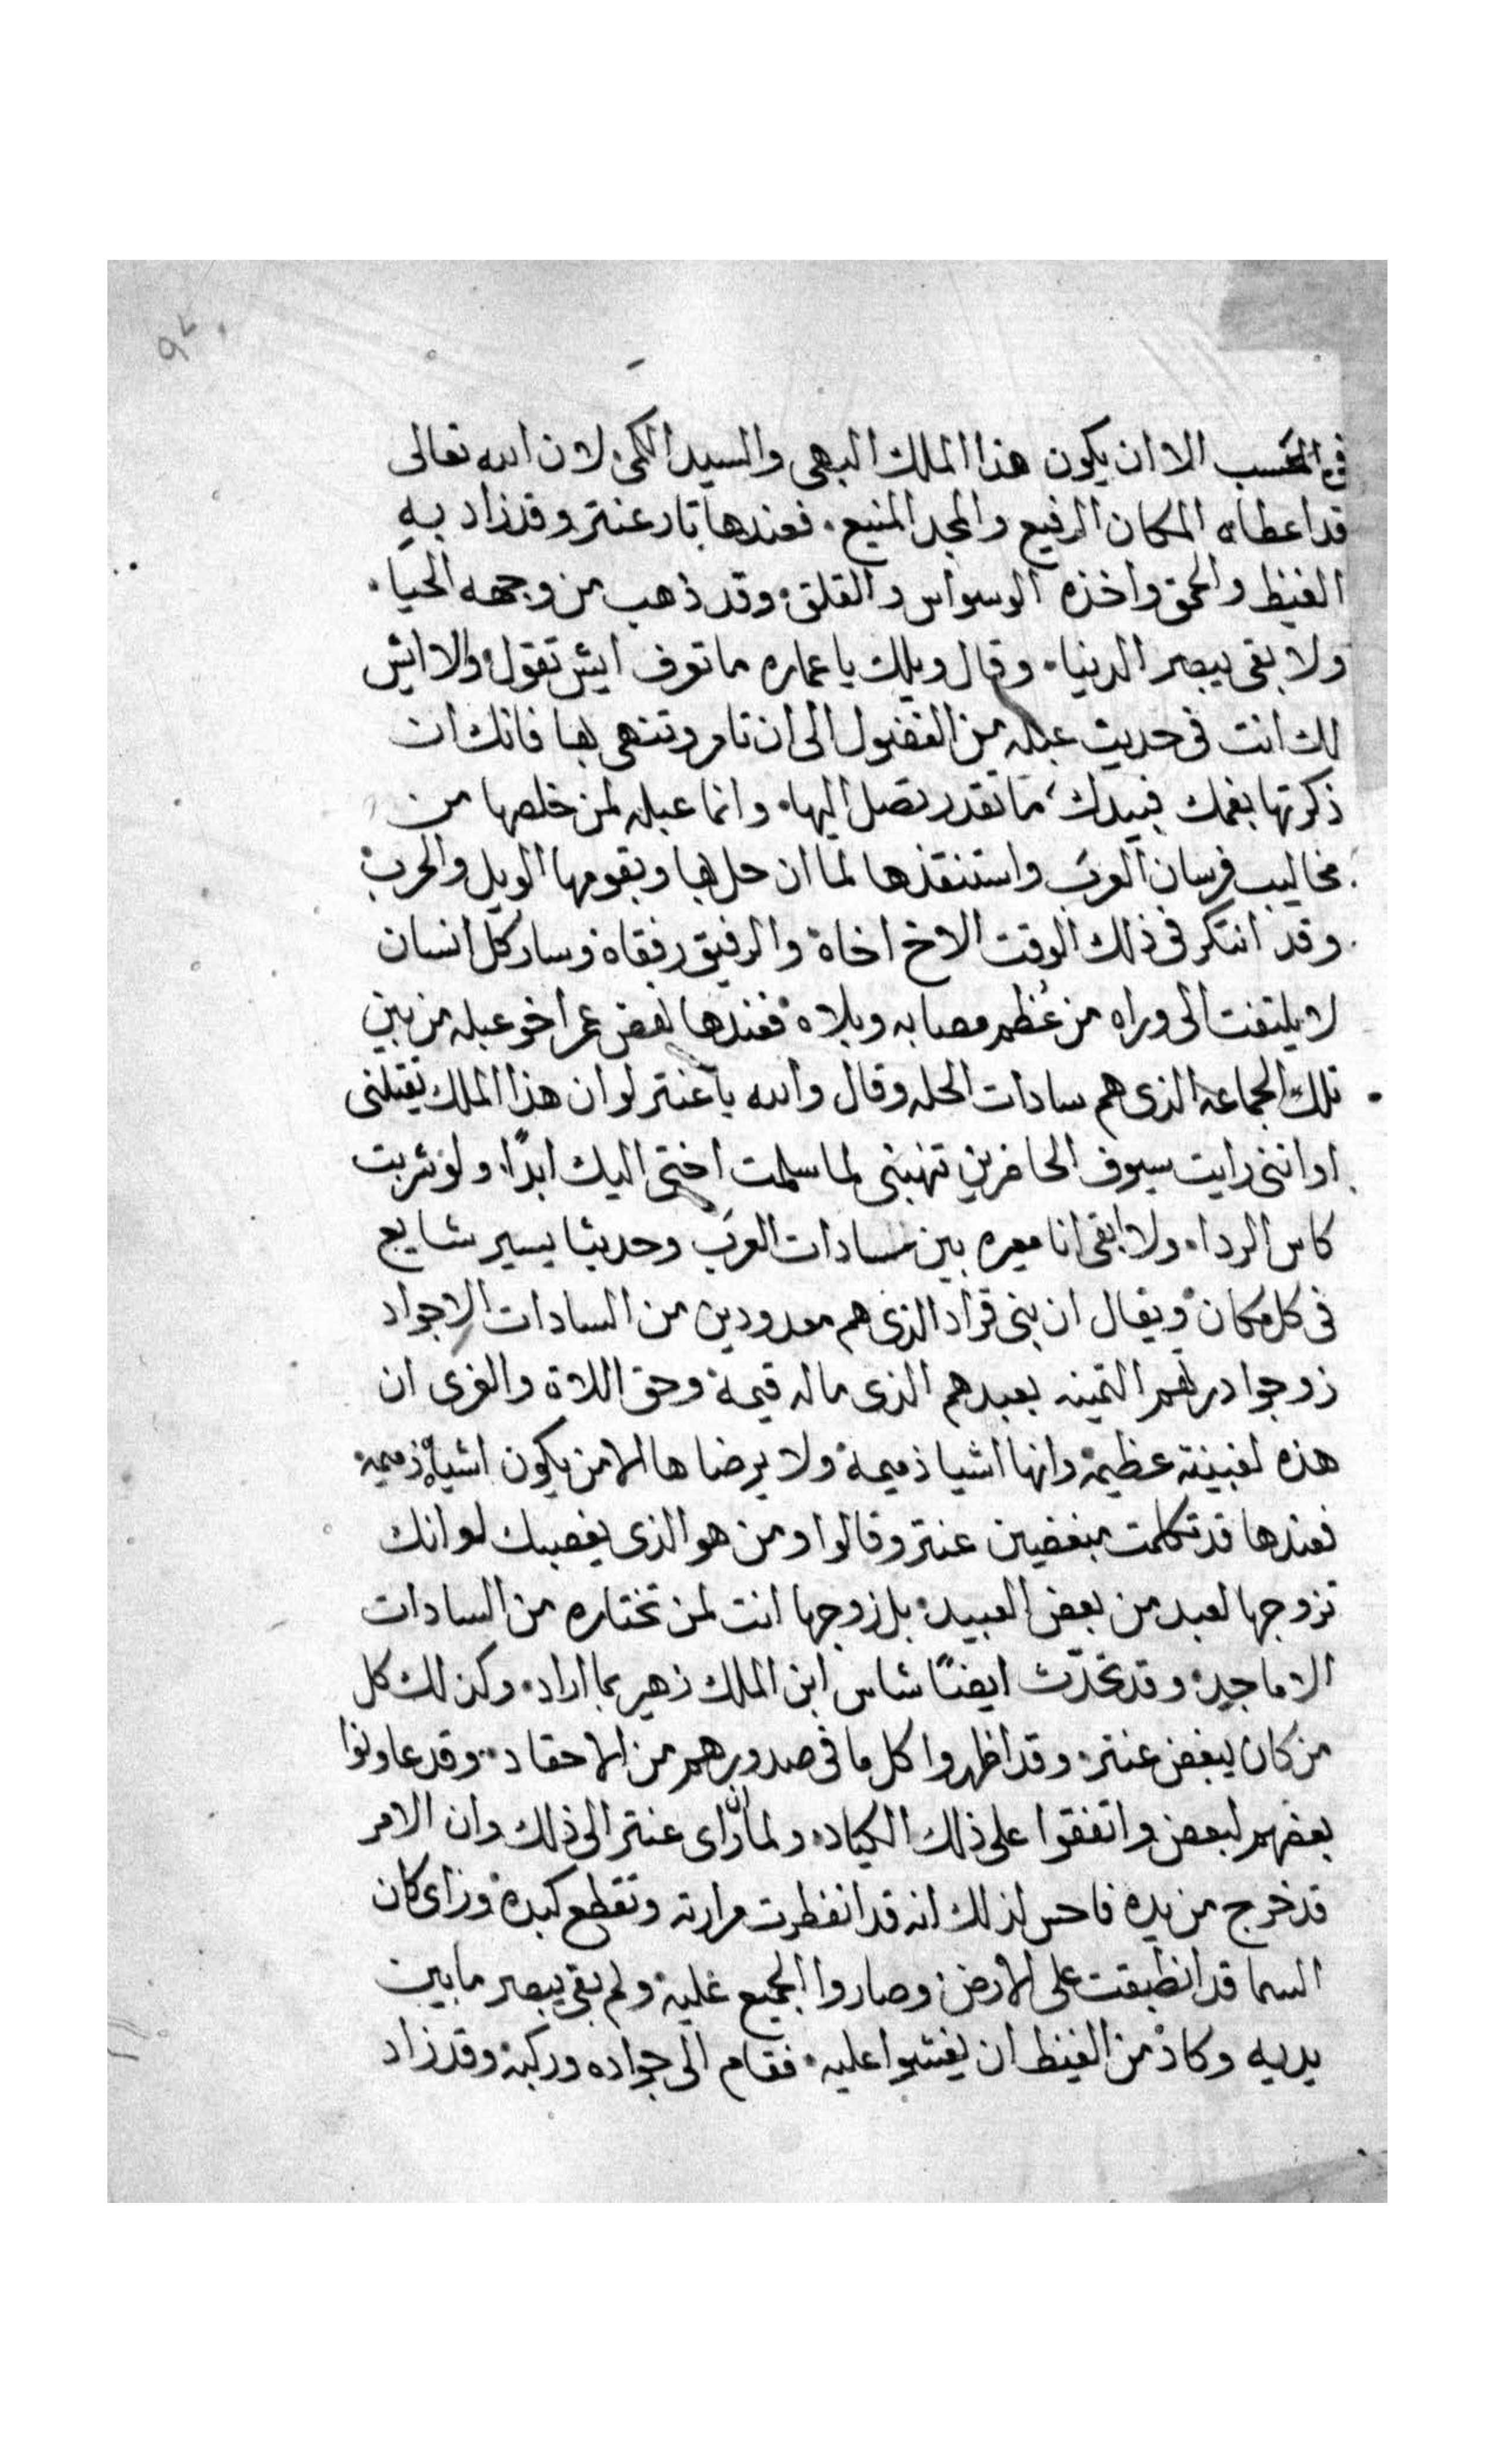 في الحسب الا ان يكون هذا الملك البهى والسيد الكمى لان الله تعالى
قد اعطاه المكان الرفيع والمجد المنيع. فعندها ثار عنتر وقد زاد به
الغيظ والحمق واخذه الوسواس والقلق. وقد ذهب من وجهه الحيا.
ولا بقى يبصر الدنيا. وقال ويلك يا عماره ما تعرف ايش تقول والا ايش
لك انت فى حديث عبله من الفضول الى ان تامر وتنهى بها فانك ان
ذكرتها بفمك فبيدك ما تقدر تصل اليها. وانما عبله لمن خلصها من
مخاليب فرسان العرب واستنقذها لما ان حل بها وبقومها الويل والحرب
وقد انتكر فى ذلك الوقت الاخ اخاه والرفيق رفقاه وسار كل انسان
لا يلتفت الى وراه من عظم مصابه وبلاه فعندها نهض عمر اخو عبله من بين
تلك الجماعة الذى هم سادات الحله وقال والله يا عنتر لو ان هذا الملك يقتلنى
او اننى رايت سيوف الحاضرين تنهبنى لما سلمت اختى اليك ابدًا ولو شربت
كاس الردا. ولا ابقى انا معيره بين سادات العرب وحديثا يسير شايع
فى كل مكان ويقال ان بنى قراد الذى هم معدودين من السادات الاجواد
زوجوا درتهم الثمينه بعبدهم الذى ماله قيمة وحق اللاة والعزى ان
هذه لغبينة عظيمة وانها اشيا ذميمة ولا يرضا ها الا من يكون اشياه ذميمة
فعندها قد تكلمت مبغضين عنتر وقالوا ومن هو الذى يغصبك لو انك
تزوجها لعبد من بعض العبيد بل زوجها انت لمن تختاره من السادات
الاماجيد وقد تحدّث ايضًا شاس ابن الملك زهير بما اراد. وكذلك كل
من كان يبغض عنتر. وقد اظهروا كل ما فى صدورهم من الاحقاد. وقد عاونوا
بعضهم لبعض واتفقوا على ذلك الكياد. ولما ان راى عنتر الى ذلك وان الامر
قد خرج من يده فاحس لذلك انه قد انفطرت مرارته وتقطع كبده وراى كان
السما قد انطبقت على الارض وصاروا الجميع عليه ولم بقى يبصر ما بين
يديه وكاد من الغيظ ان يغشوا عليه. فقام الى جواده وركبه وقد زاد